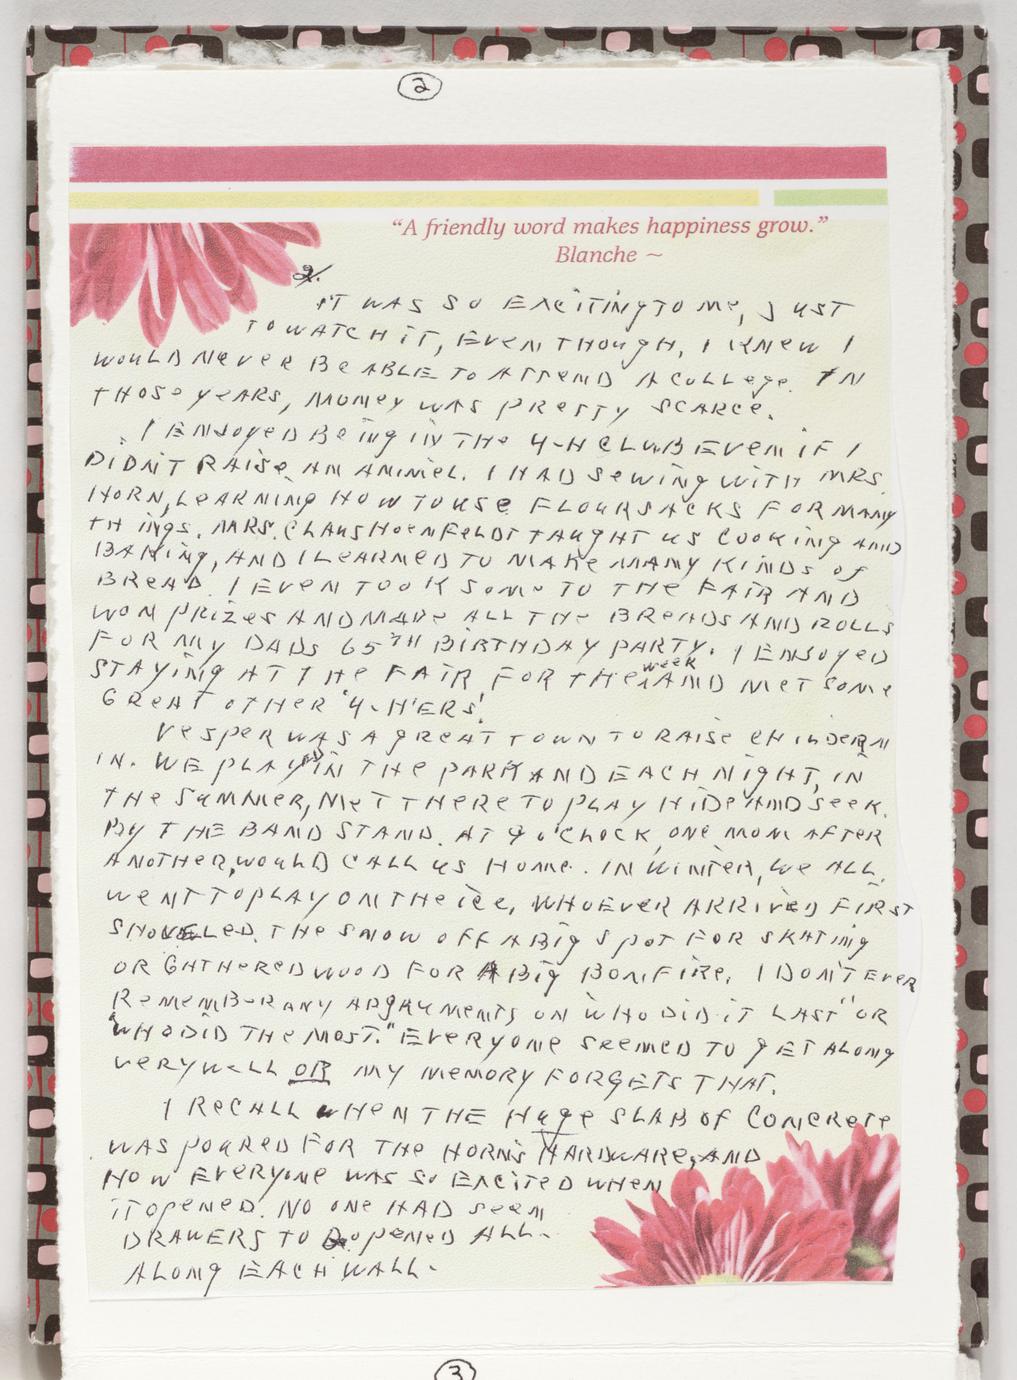 2
"A friendly word makes happiness grow."
Blanche ~
2.
IT WAS SO EXCITING TO ME, JUST
TO WATCH IT, EVEN THOUGH, I KNEW I
WOULD NEVER BE ABLE TO ATTEND A COLLEGE. IN
THOSE YEARS, MONEY WAS PRETTY SCARCE.
I ENJOYED BEING IN THE 4-H CLUB EVEN IF I
DIDN'T RAISE AN ANIMEL. I HAD SEWING WITH MRS.
HORN, LEARNING HOW TO USE FLOURSACKS FOR MANY
THINGS. MRS. CLAUS HOENFELDT TAUGHT US COOKING AND
BAKING, AND I LEARNED TO MAKE MANY KINDS OF
BREAD. I EVEN TOOK SOME TO THE FAIR AND
WON PRIZES AND MADE ALL THE BREADS AND ROLLS
FOR MY DADS 65TH BIRTHDAY PARTY. I ENJOYED
STAYING AT THE FAIR FOR THE WEEK AND MET SOME
GREAT OTHER '4-H'ERS'.
VESPER WAS A GREAT TOWN TO RAISE CHILDERN
IN. WE PLAYED IN THE PARK AND EACH NIGHT, IN
THE SUMMER, MET THERE TO PLAY HIDE AND SEEK.
BY THE BAND STAND. AT 9 O'CLOCK, ONE MOM AFTER
ANOTHER, WOULD CALL US HOME. IN WINTER, WE ALL
WENT TO PLAY ON THE ICE, WHOEVER ARRIVED FIRST
SHOVELED THE SNOW OFF A BIG SPOT FOR SKATING
OR GATHERED WOOD FOR A BIG BONFIRE. I DON'T EVER
REMEMBER ANY ARGRUMENTS ON "WHO DID IT LAST" OR
"WHO DID THE MOST." EVERYONE SEEMED TO GET ALONG
VERY WELL OR MY MEMORY FORGETS THAT.
I RECALL WHEN THE HUGE SLAB OF CONCRETE
WAS POURED FOR THE HORN'S HARDWARE, AND
HOW EVERYONE WAS SO EXCITED WHEN
IT OPENED. NO ONE HAD SEEN
DRAWERS TO OPENED ALL.
ALONG EACH WALL.
3